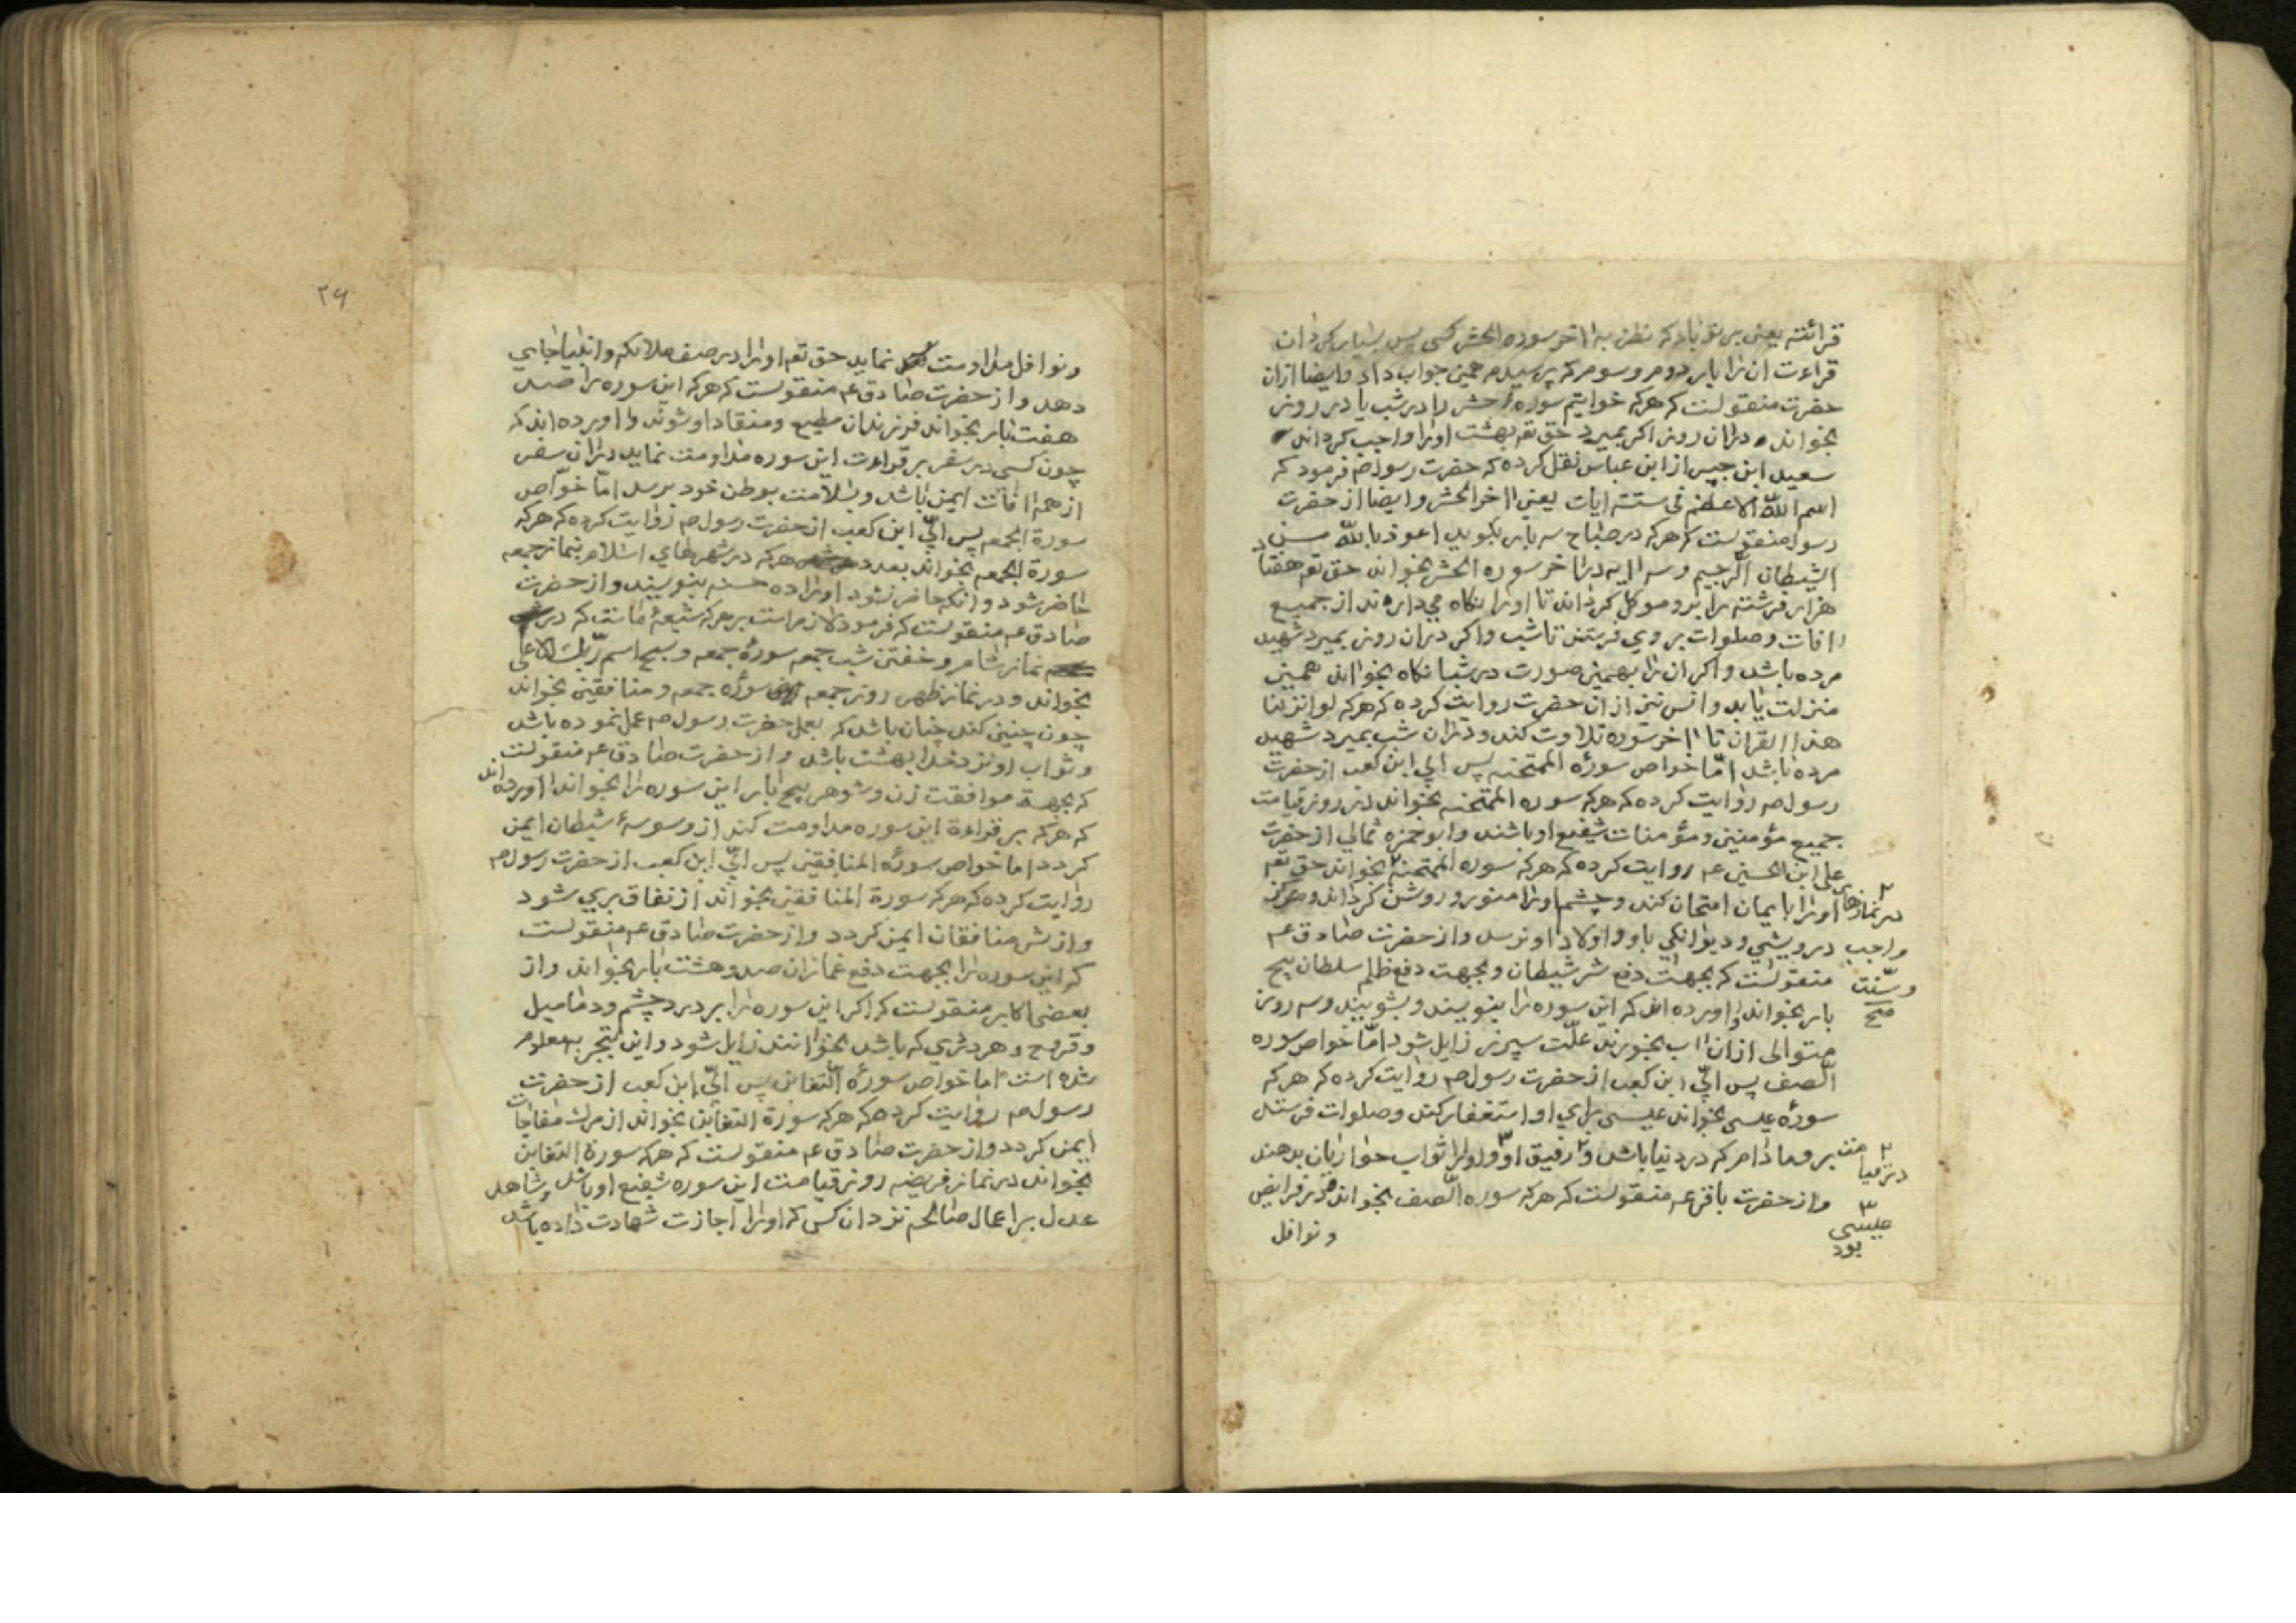 قرائته یعنی بر تو باد که نظر به آخر سوره الحشر کنی پس بسیار کردان
قراءت ان را بار دوم و سوم که پرسیدم همین جواب داد وایضا ازان
حضرت منقولست که هرکه خواتیم سورهٔ حشر را در شب یا در روز
بخواند و دران روز اکر بمیرد حق تع بهشت اورا واجب کرداند
سعید ابن جبیر از ابن عباس نقل کرده که حضرت رسول صم فرمود که
اسم اللّه الاعظم فی ستته ایات یعنی اخر الحشر وایضا از حضرت
رسول منقولست که هرکه در صباح سه بار بکوید اعوذ باللّه من
الشیطان الرّجیم و سه ایه در اخر سوره الحشر بخواند حق تع هفتاد
هزار فرشته را برو موکل کرداند تا اورا نکاه می دارند از جمیع
افات و صلوات بر وی فرستند تا شب واکر دران روز بمیرد شهید
مرده باشد واکر ان را بهمین صورت در شبانکاه بخواند همین
منزلت یابد وانس نیز از ان حضرت روایت کرده که هرکه لو انزلنا
هذا القران تا اخر سوره تلاوت کند و دران شب بمیرد شهید
مرده باشد امّا خواص سورهٔ الممتحنه پس ابی ابن کعب از حضرت
رسول صم روایت کرده که هرکه سوره الممتحنه بخواند در روز قیامت
جمیع مؤمنین و مؤمنات شفیع او باشند وابو حمزه ثمالی از حضرت
علی ابن الحسین عم روایت کرده که هرکه سوره الممتحنه ۲ بخواند حق تع
اورا بایمان امتحان کند و چشم اورا منور و روشن کرداند و هرکز
۲ در نمازهای
درویشی و دیوانکی باو و اولاد او نرسد واز حضرت صادق عم
واجب
منقولست که بجهت دفع شر شیطان و بجهت دفع ظلم سلطان پنج
و سنّت
صح
بار بخواند واورده اند که این سوره را بنویسند و بشویند و سه روز
متوالی ازان اب بخورند علّت سپرز زایل شود امّا خواص سوره
الّصف پس ابیّ ابن کعب از حضرت رسول صم روایت کرده که هرکه
سورهٔ عیسی بخواند عیسی برای او استغفار کند و صلوات فرستد
برو مادام که در دنیا باشد و ۲ رفیق او ۳ و اورا ثواب حواریان بدهند
۲ در قیامت
واز حضرت باقر عم منقولست که هرکه سوره الّصف بخواند در فرایض
۳ عیسی بود
و نوافل
۲۶
و نوافل مداومت نماید حق تع اورا در صف ملائکه وانبیا جای
دهد واز حضرت صادق عم منقولست که هرکه این سوره را صد
هفت بار بخواند فرزندان مطیع و منقاد او شوند واورده اند که
چون کسی در سفر بر قراءت این سوره مداومت نماید دران سفر
از همهٔ افات ایمن باشد و بسلامت بوطن خود برسد امّا خوّاص
سورة الجمعه پس ابیّ ابن کعب از حضرت رسول صم روایت کرده که هرکه
سورة الجمعه بخواند بعدد هرکه در شهرهای اسلام بنماز جمعه
حاضر شود وانکه حاضر نشود اورا ده حسنه بنویسند واز حضرت
صادق عم منقولست که فرمود لازمراست بر هرکه شیعهٔ ماست که در
نماز شام و خفتن شب جمعه سورهٔ جمعه و سبح اسم ربّک الاعلی
بخواند و در نماز ظهر روز جمعه سوره جمعه و منافقین بخواند
چون چنین کند چنان باشد که بعمل حضرت رسول صم عمل نموده باشد
و ثواب او نزد خدا بهشت باشد واز حضرت صادق عم منقولست
که بجهة موافقت زن و شوهر پنج بار این سوره را بخواند اورده اند
که هرکه بر قراءة این سوره مداومت کند از وسوسهٔ شیطان ایمن
کردد اما خواص سورهٔ المنافقین پس ابیّ ابن کعب از حضرت رسول صم
روایت کرده که هرکه سورة المنافقین بخواند از نفاق بری شود
واز شر منافقان ایمن کردد واز حضرت صادق عم منقولست
که این سوره را بجهت دفع غمازان صد و هشت بار بخواند واز
بعضی اکابر منقولست که اکر این سوره را بر درد چشم و دمامیل
و قروح و هر دردی که باشد بخوانند زایل شود و این بتجربه معلوم
شده است اما خواص سورهٔ التغابن پس ابیّ ابن کعب از حضرت
رسول صم روایت کرده که هرکه سورة التغابن بخواند از مرک مفاجات
ایمن کردد واز حضرت صادق عم منقولست که هرکه سورة التغابن
بخواند در نماز فریضه روز قیامت این سوره شفیع او باشد و شاهد
عدل بر اعمال صالحه نزد ان کس که اورا اجازت شهادت داده باشد